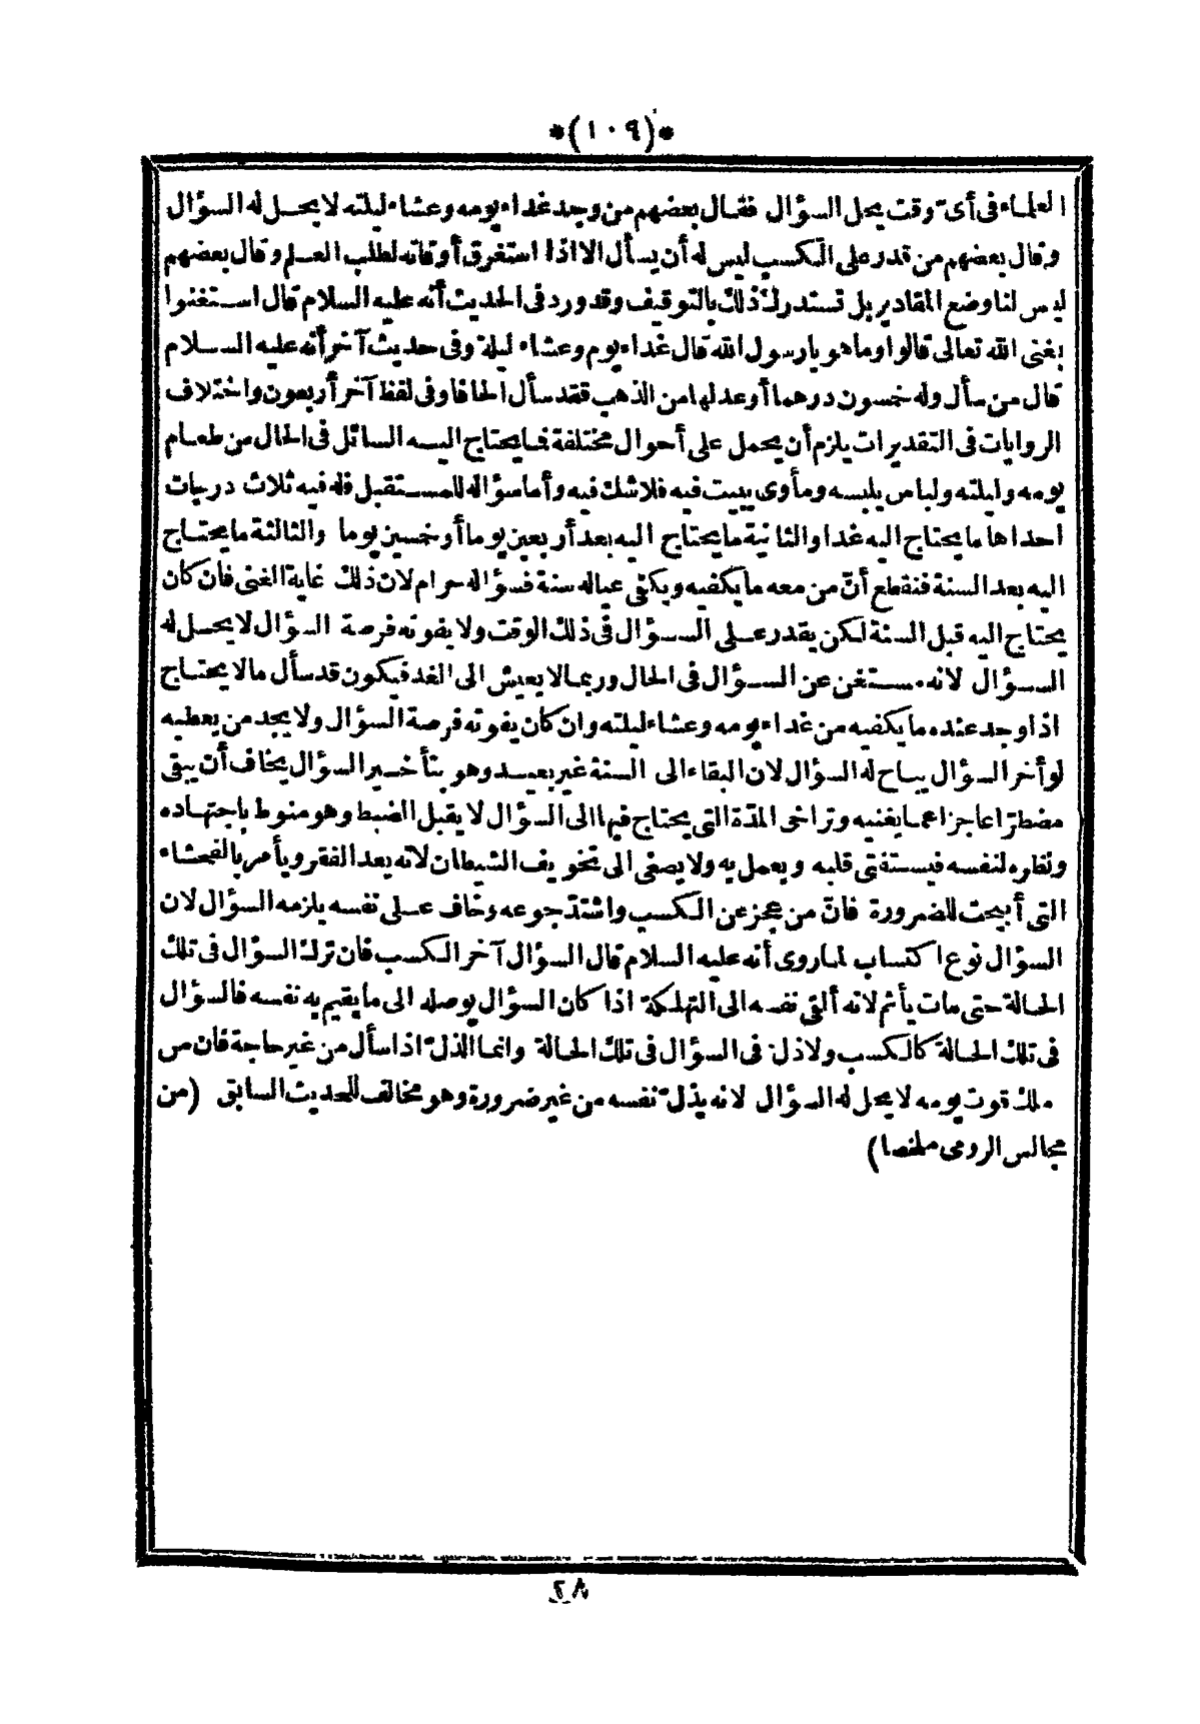 *(١٠٩)*
العلماء فى أىّ وقت يحل السؤال فقال بعضهم من وجد غداء يومه وعشاء ليلته لا يحل له السؤال
وقال بعضهم من قدر على الكسب ليس له أن يسأل الا اذا استغرق أوقاته لطلب العلم وقال بعضهم
ليس لنا وضع المقادير بل تستدرك ذلك بالتوقيف وقد ورد فى الحديث أنه عليه السلام قال استغنوا
بغنى الله تعالى قالوا وما هو يا رسول الله قال غداء يوم وعشاء ليلة وفى حديث آخر أنه عليه السلام
قال من سأل وله خمسون درهما أو عدلها من الذهب فقد سأل الحافا وفى لفظ آخر أربعون واختلاف
الروايات فى التقديرات يلزم أن يحمل على أحوال مختلفة فما يحتاج اليه السائل فى الحال من طعام
يومه وليلته ولباس يلبسه ومأوى يبيت فيه فلا شك فيه وأما سؤاله للمستقبل فله فيه ثلاث درجات
احداها ما يحتاج اليه غدا والثانية ما يحتاج اليه بعد أربعين يوما أو خمسين يوما والثالثة ما يحتاج
اليه بعد السنة فنقطع أنّ من معه ما يكفيه ويكفى عياله سنة فسؤاله حرام لان ذلك غاية الغنى فان كان
يحتاج اليه قبل السنة لكن يقدر على السؤال فى ذلك الوقت ولا يفوته فرصة السؤال لا يحل له
السؤال لانه مستغن عن السؤال فى الحال وربما لا يعيش الى الغد فيكون قد سأل ما لا يحتاج
اذا وجد عنده ما يكفيه من غداء يومه وعشاء ليلته وان كان يفوته فرصة السؤال ولا يجد من يعطيه
لو أخر السؤال يباح له السؤال لان البقاء الى السنة غير بعيد وهو بتأخير السؤال يخاف أن يبقى
مضطرّا عاجزا عما يغنيه وتراخى المدّة التى يحتاج فيها الى السؤال لا يقبل الضبط وهو منوط باجتهاده
ونظره لنفسه فيستفتى قلبه ويعمل به ولا يصغى الى تخويف الشيطان لانه يعد الفقر ويأمر بالفحشاء
التى أبيحت للضرورة فانّ من عجز عن الكسب واشتدّ جوعه وخاف على نفسه يلزمه السؤال لان
السؤال نوع اكتساب لما روى أنه عليه السلام قال السؤال آخر الكسب فان ترك السؤال فى تلك
الحالة حتى مات يأثم لانه ألقى نفسه الى التهلكة اذا كان السؤال يوصله الى ما يقيم به نفسه فالسؤال
فى تلك الحالة كالكسب ولا ذل فى السؤال فى تلك الحالة وانما الذلّ اذا سأل من غير حاجة فان من
ملك قوت يومه لا يحل له السؤال لانه يذلّ نفسه من غير ضرورة وهو مخالف للحديث السابق (من
مجالس الرومى ملخصا)
٢٨